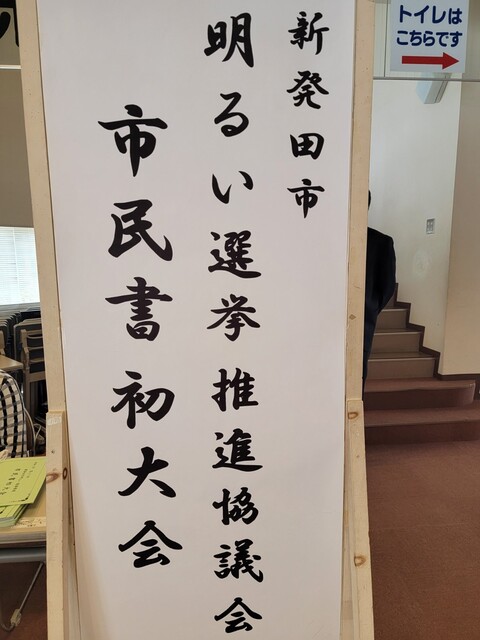 新発田市
明るい選挙推進協議会
市民書初大会
トイレは
こちらです